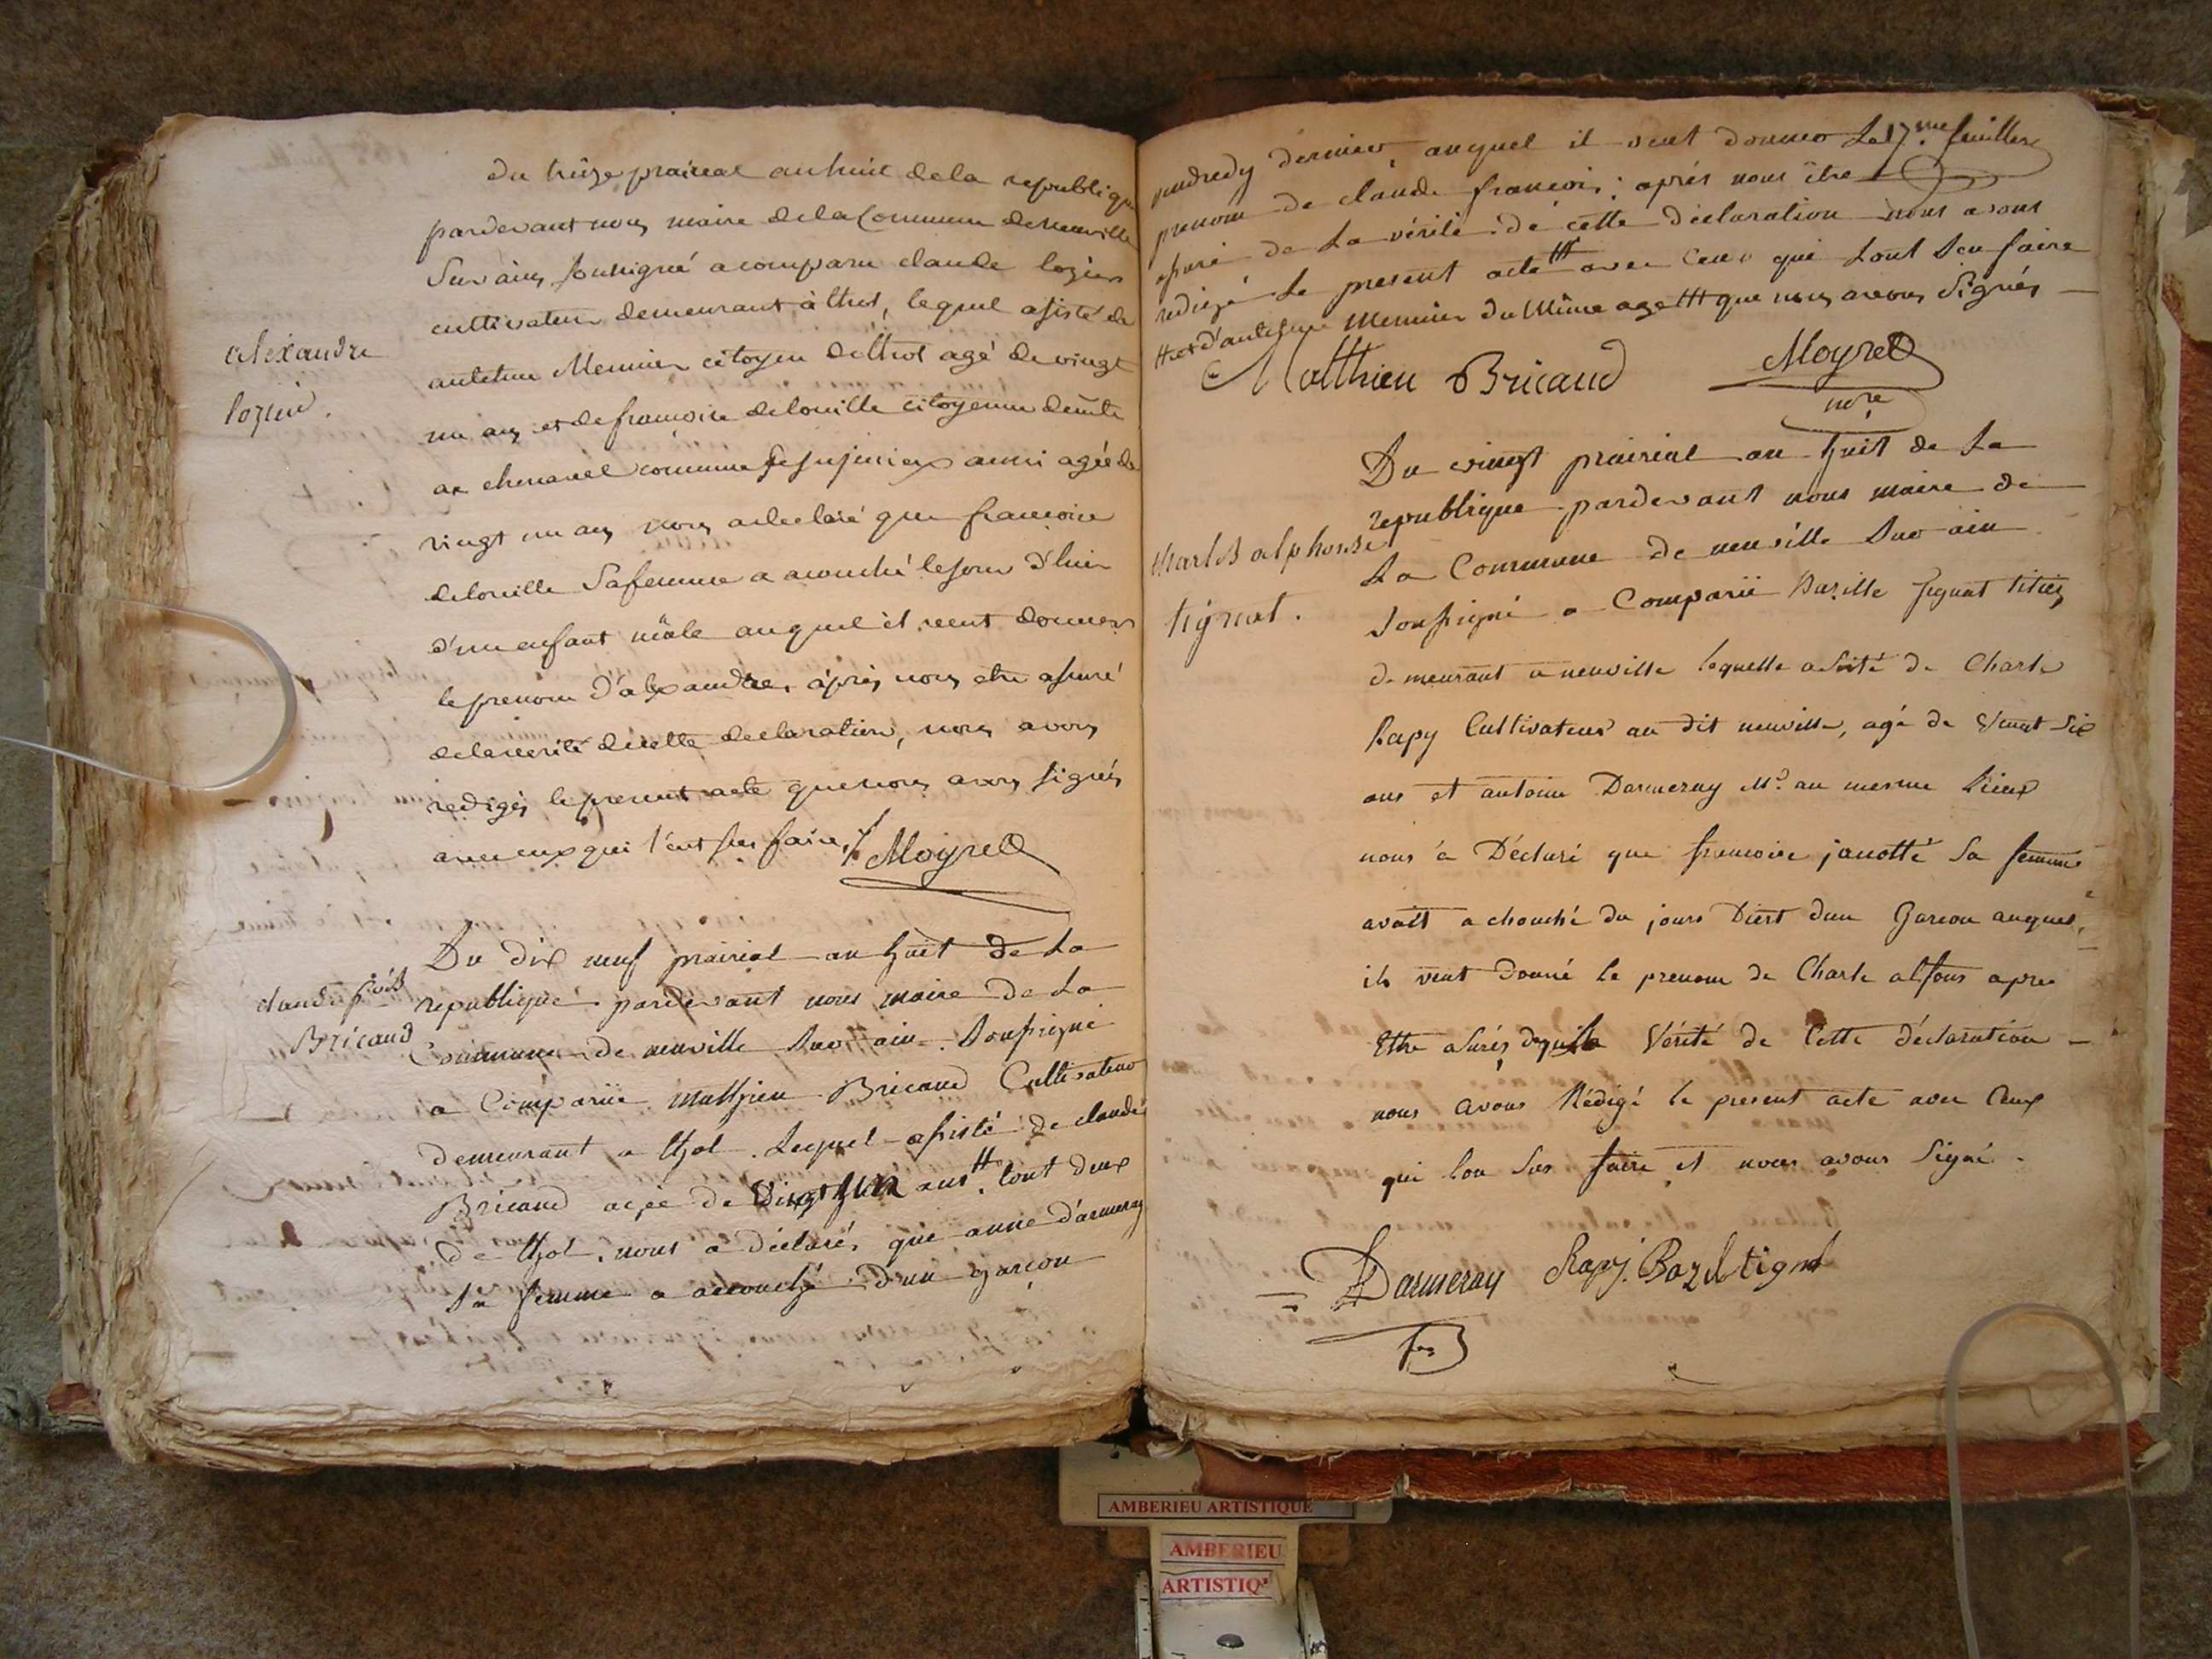 du treize prairial an huit de la republique
pardevant nous maire de la Commune de neuville
Sur ains soussigné a comparu claude lozier
cultivateur demeurant à thol, lequel assisté de
antelme Meunier citoyen de thol agé de vingt
un ans et de francoise delouille citoyenne
chenavel commune de jujurieux aussi agée de
vingt un ans nous a declaré que francoise
delouille Sa femme a acouché le jour d'hier
d'un enfant mâle auquel il veut donner
le prenom d'alexandre, après nous etre assuré
de la verité de cette declaration, nous avons
redigés le present acte que nous avons signés
avec ceux qui l'ont sçu faire, Moyret
alexandre
lozier.
Du dix neuf prairial an huit de La
republique pardevant nous maire de La
Commune de neuville Sur ain. Soussigné
a Comparüe matthieu Bricand Cultivateur
demeurant a thol. Lequel assisté de claude
Bricand agée de vingt un ans tt. tout deux
de thol. nous a déclaré, que anne d'armeray
Sa femme a accouché d'un garçon
claude f.çois
Bricand
vendredy dernier, auquel il veut donner Le 17.me feuillere
prenom de claude francois; après nous être
assuré de La vérité de cette déclaration nous avons
redigé Le present acte ttt avec Ceux qui Lont Sçu faire
tt et d'antelme Meunier du même age ttt que nous avons Signés
Matthieu Bricand Moyret
mre
Du vingt prairial an huit de La
republique pardevant nous maire de
La Commune de neuville Sur ain
Soussigné a Comparüe Bazille tignat
demeurant a neuville lequelle asisté de Charle
Rapy Cultivateur au dit neuville, agé de Vingt Six
ans et antoine Darmeray M.d au mesme Lieux
nous a Déclaré que francoise janotté Sa femme
avait achouché du jours Diert dun Garcon auquel
ils veut donné le prenom de Charle alfons apres
Ettre asurés de la Vérité de Cette déclaration
nous avons Rédigé le present acte avec Ceux
qui lon Sus faire et nous avons Signé.
Charles alphonse
tignat.
Darmeray Rapy. Bazil tignat
AMBERIEU ARTISTIQUE
AMBERIEU
ARTISTIQ